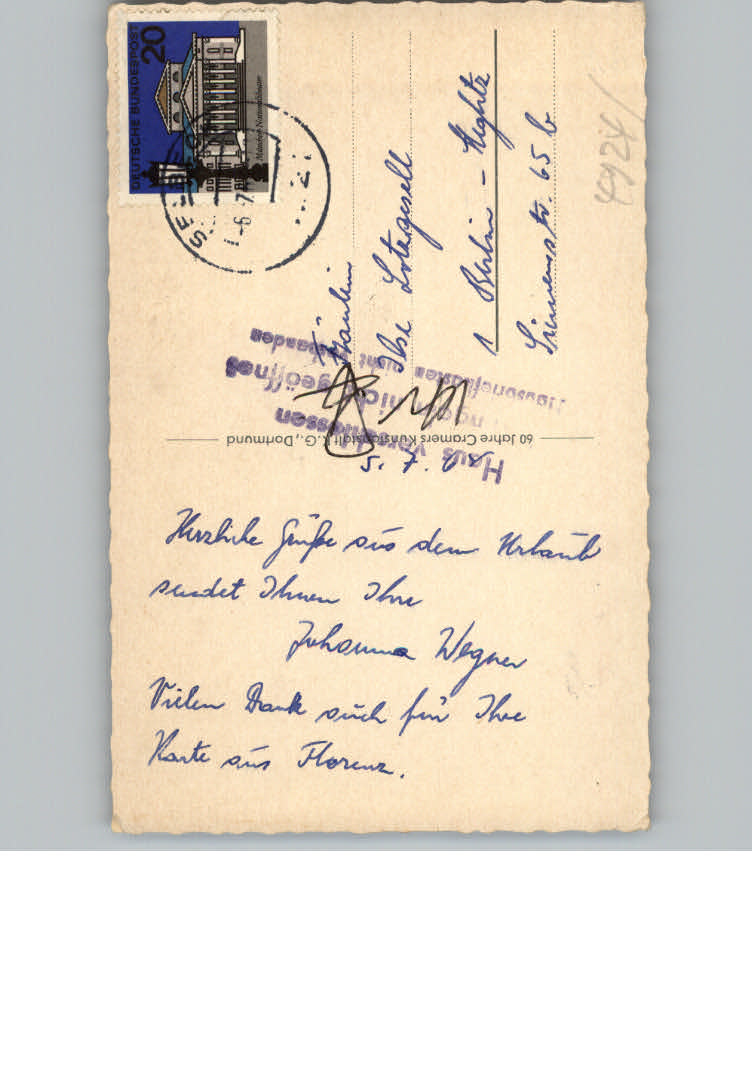 DEUTSCHE BUNDESPOST
20
München Nationaltheater
Fräulein
Ilse
1 Berlin - Steglitz
Haus verschlossen
noch nicht geöffnet
Hausbriefkasten nicht vorhanden
60 Jahre Cramers Kunstanstalt K.G., Dortmund
5. 7.
Herzliche Grüße aus dem Urlaub
sendet Ihnen Ihre
Johanna Wegner
Vielen Dank auch für Ihre
Karte aus Florenz.